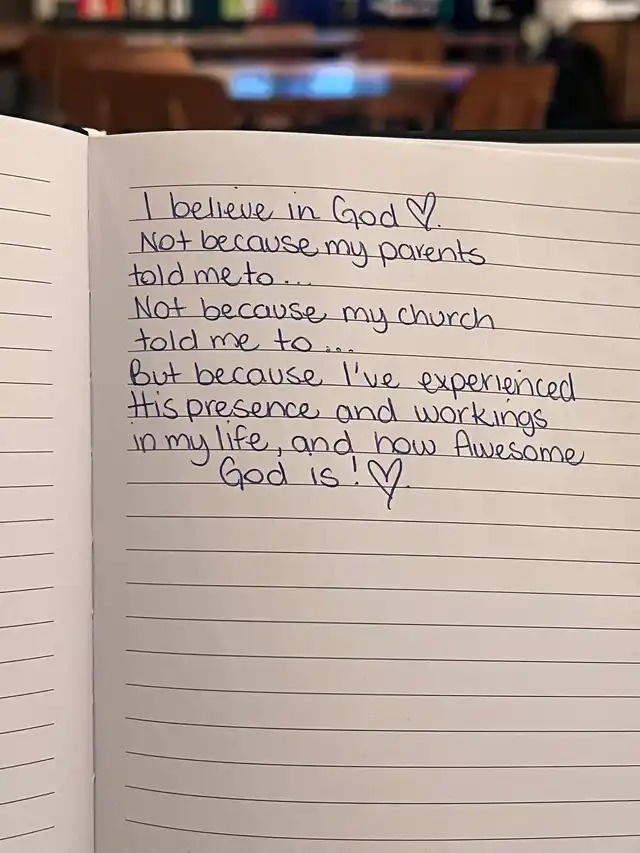 I believe in God ♡.
Not because my parents
told me to...
Not because my church
told me to...
But because I've experienced
His presence and workings
in my life, and how Awesome
God is! ♡